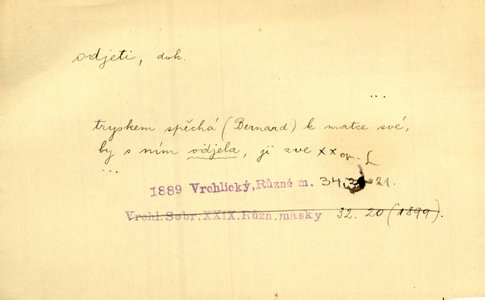 odjeti, dok.
...
tryskem spěchá (Bernard) k matce své,
by s ním odjela, ji zve xx
...
1889 Vrchlický, Různé m. 34, 21.
Vrchl. Sebr. XXIX. Různ. masky 32. 20 (1899).